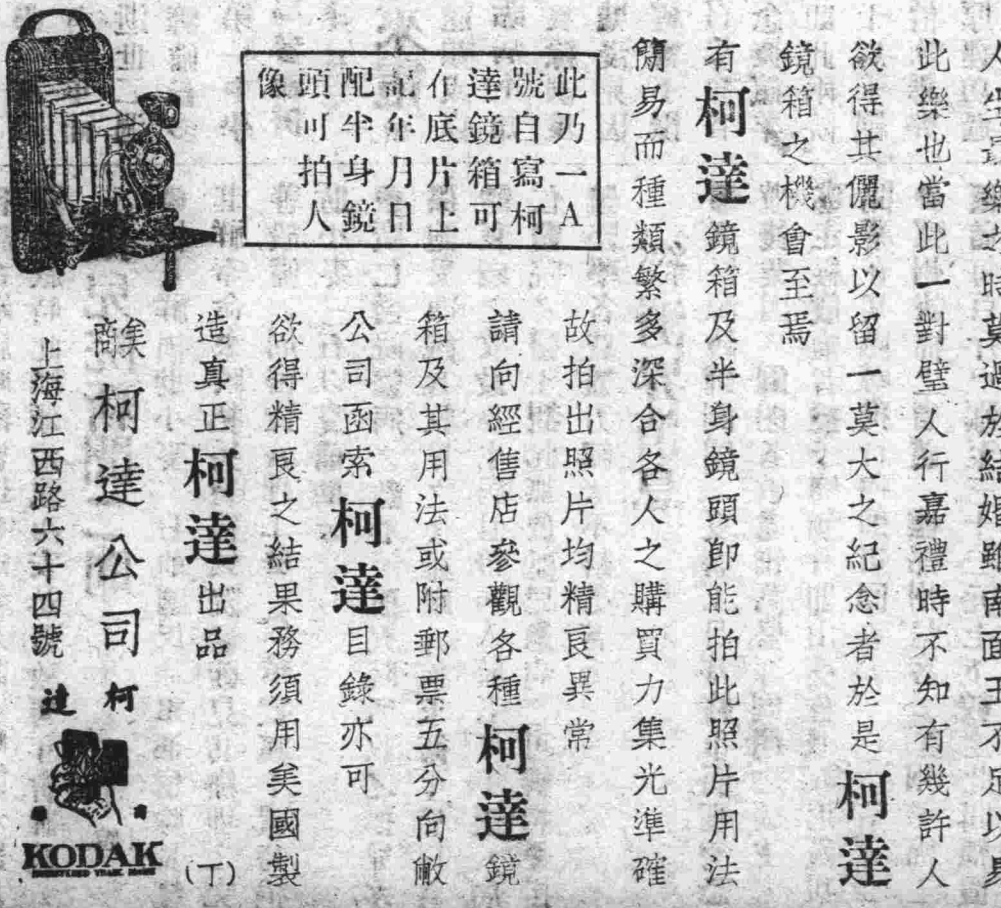 人生最樂之時莫過於結婚雖南面王不足以易
此樂也當此一對璧人行嘉禮時不知有幾許人
欲得其儷影以留一莫大之紀念者於是柯達
鏡箱之機會至焉
有柯達鏡箱及半身鏡頭即能拍此照片用法
簡易而種類繁多深合各人之購買力集光準確
故拍出照片均精良異常
請向經售店參觀各種柯達鏡
箱及其用法或附郵票五分向敝
公司函索柯達目錄亦可
欲得精良之結果務須用美國製
造真正柯達出品
(丁)
此乃一A
號自寫柯
達鏡箱可
在底片上
記年月日
配半身鏡
頭可拍人
像
美商柯達公司
上海江西路六十四號
柯達
KODAK
REGISTERED TRADE MARK